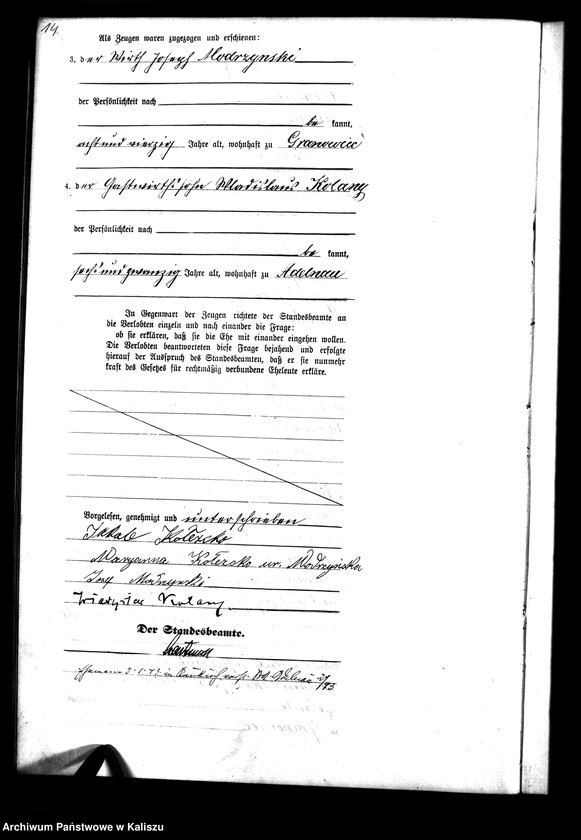 14.
Als Zeugen waren zugezogen und erschienen:
3. der Wirth Joseph Modrzynski
der Persönlichkeit nach
be kannt,
acht und vierzig Jahre alt, wohnhaft zu Granowiec
4. der Gastwirthssohn Wladislaus Kolany
der Persönlichkeit nach
be kannt,
sechs und zwanzig Jahre alt, wohnhaft zu Adelnau
In Gegenwart der Zeugen richtete der Standesbeamte an
die Verlobten einzeln und nach einander die Frage:
ob sie erklären, daß sie die Ehe mit einander eingehen wollen.
Die Verlobten beantworteten diese Frage bejahend und erfolgte
hierauf der Ausspruch des Standesbeamten, daß er sie nunmehr
kraft des Gesetzes für rechtmäßig verbundene Eheleute erkläre.
Vorgelesen, genehmigt und unterschrieben
Jakob
Maryanna ur. Modrzyńska
Modrzynski
Władysław Kolany.
Der Standesbeamte.
Ehemann in
Archiwum Państwowe w Kaliszu